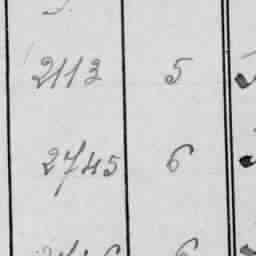 2113 5
2745 6